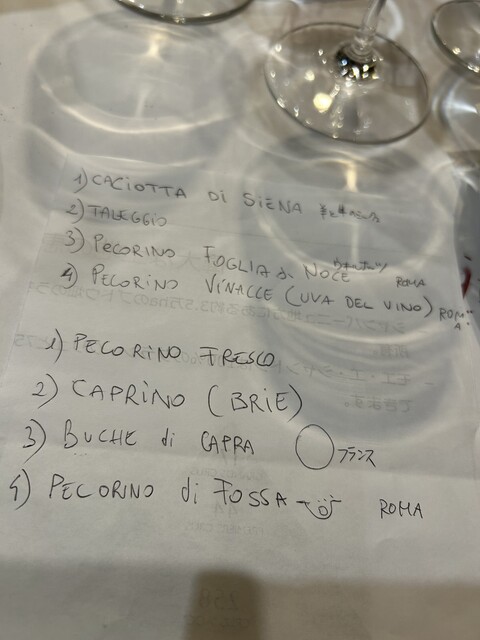 1) CACIOTTA Di SiENA 羊と牛
2) TALEGGIO
3) PECORINO FOGLIA di NOCE ウォールナーツ ROMA
4) PECORINO VINACCE (UVA DEL VINO) ROMA
1) PECORINO FRESCO
2) CAPRINO (BRIE)
3) BUCHE di CAPRA フランス
4) PECORINO di FOSSA ROMA